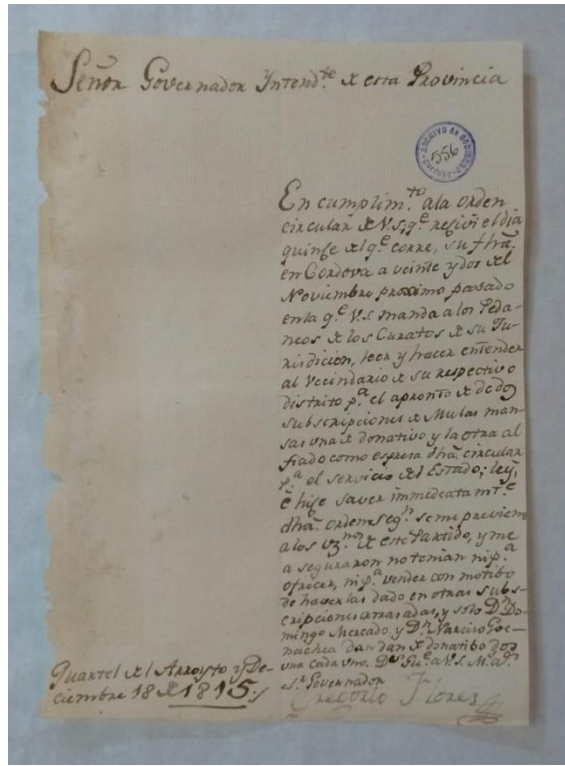 Señor Governador Yntend.te de esta Provincia
ARCHIVO de GOBIERNO
556
En cumplim.to ala orden
circular de V.S. q.e resivi el dia
quinse del q.e corre, su fha.
en Cordova a veinte y dos del
Noviembre proximo pasado
en la q.e V.S. manda alos Peda-
neos de los Curatos de su Ju-
risdicion, leer y hacer entender
al Vecindario de su respectivo
distrito p.a el apronto de dos
subscripciones de Mulas man-
sas una de donativo y la otra al
fiado como espresa dha. circular
p.a el servicio del Estado; ley,
é hise saver immediatam.te
dha. orden seg.n se me previene
a los vz.nos de este Partido, y me
a seguraron no tenian ni p.a
ofrecer, ni p.a vender con motibo
de haverlas dado en otras subs-
cripciones y solo D.n Do-
mingo Mercado, y D.n Narciso
dan de donatibo dos
una cada uno. D.s gu.e a V.S. m.s a.s
S.r Governador
Quartel del Arroyto y De-
ciembre 18 de 1815
Gregorio Flores